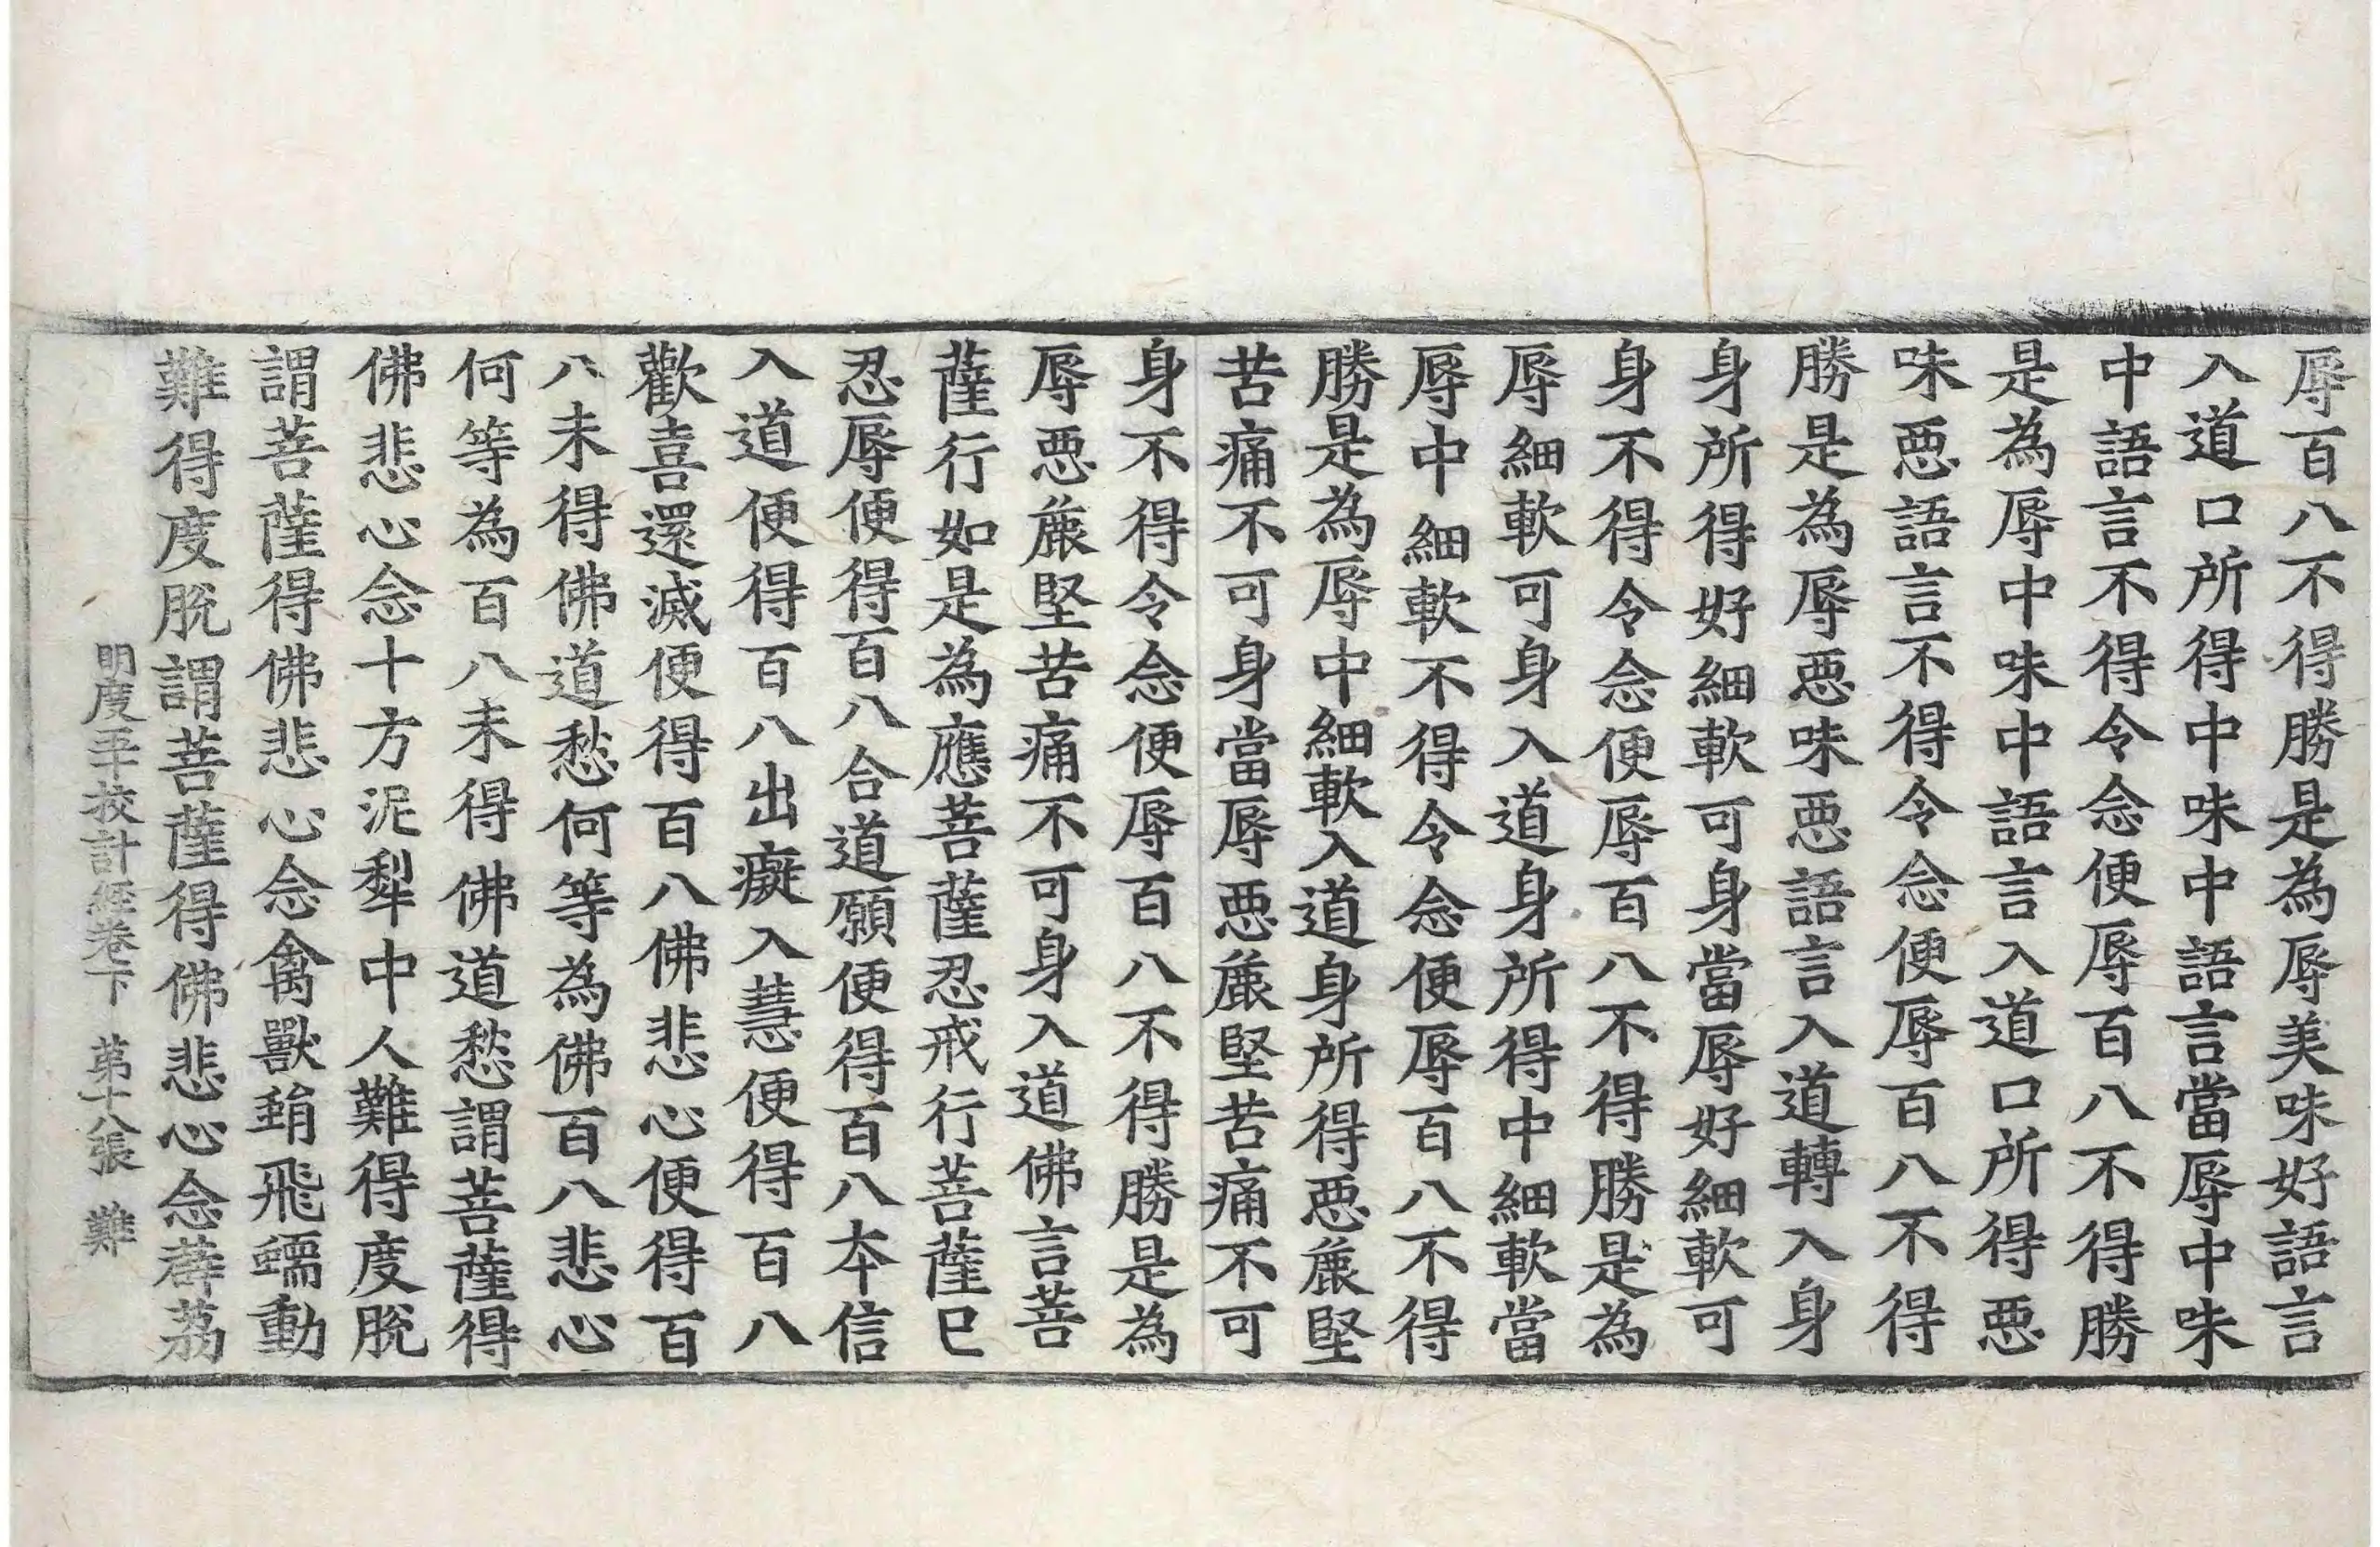 辱百八不得勝是為辱美味好語言
入道口所得中味中語言當辱中味
中語言不得令念便辱百八不得勝
是為辱中味中語言入道口所得惡
味惡語言不得令念便辱百八不得
勝是為辱惡味惡語言入道轉入身
身所得好細軟可身當辱好細軟可
身不得令念便辱百八不得勝是為
辱細軟可身入道身所得中細軟當
辱中細軟不得令念便辱百八不得
勝是為辱中細軟入道身所得惡麁堅
苦痛不可身當辱惡麁堅苦痛不可
身不得令念便辱百八不得勝是為
辱惡麁堅苦痛不可身入道佛言菩
薩行如是為應菩薩忍戒行菩薩已
忍辱便得百八合道願便得百八本信
入道便得百八出癡入慧便得百八
歡喜還滅便得百八佛悲心便得百
八未得佛道愁何等為佛百八悲心
何等為百八未得佛道愁謂菩薩得
佛悲心念十方泥犁中人難得度脫
謂菩薩得佛悲心念禽獸蛸飛蠕動
難得度脫謂菩薩得佛悲心念薜荔
明度五十校計經卷下 第十八張 難